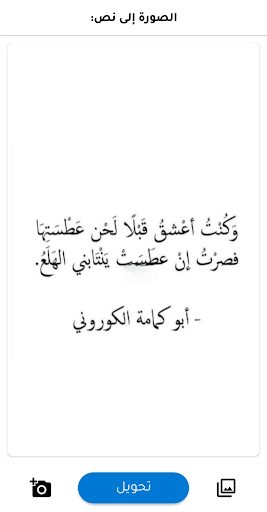 الصورة إلى نص:
وَكُنْتُ أعْشقُ قَبْلًا لَحْن عَطْسَتِهَا
فصرْتُ إنْ عطَسَتْ يَنْتَابني الهَلَعُ.
- أبو كمامة الكوروني
تحويل